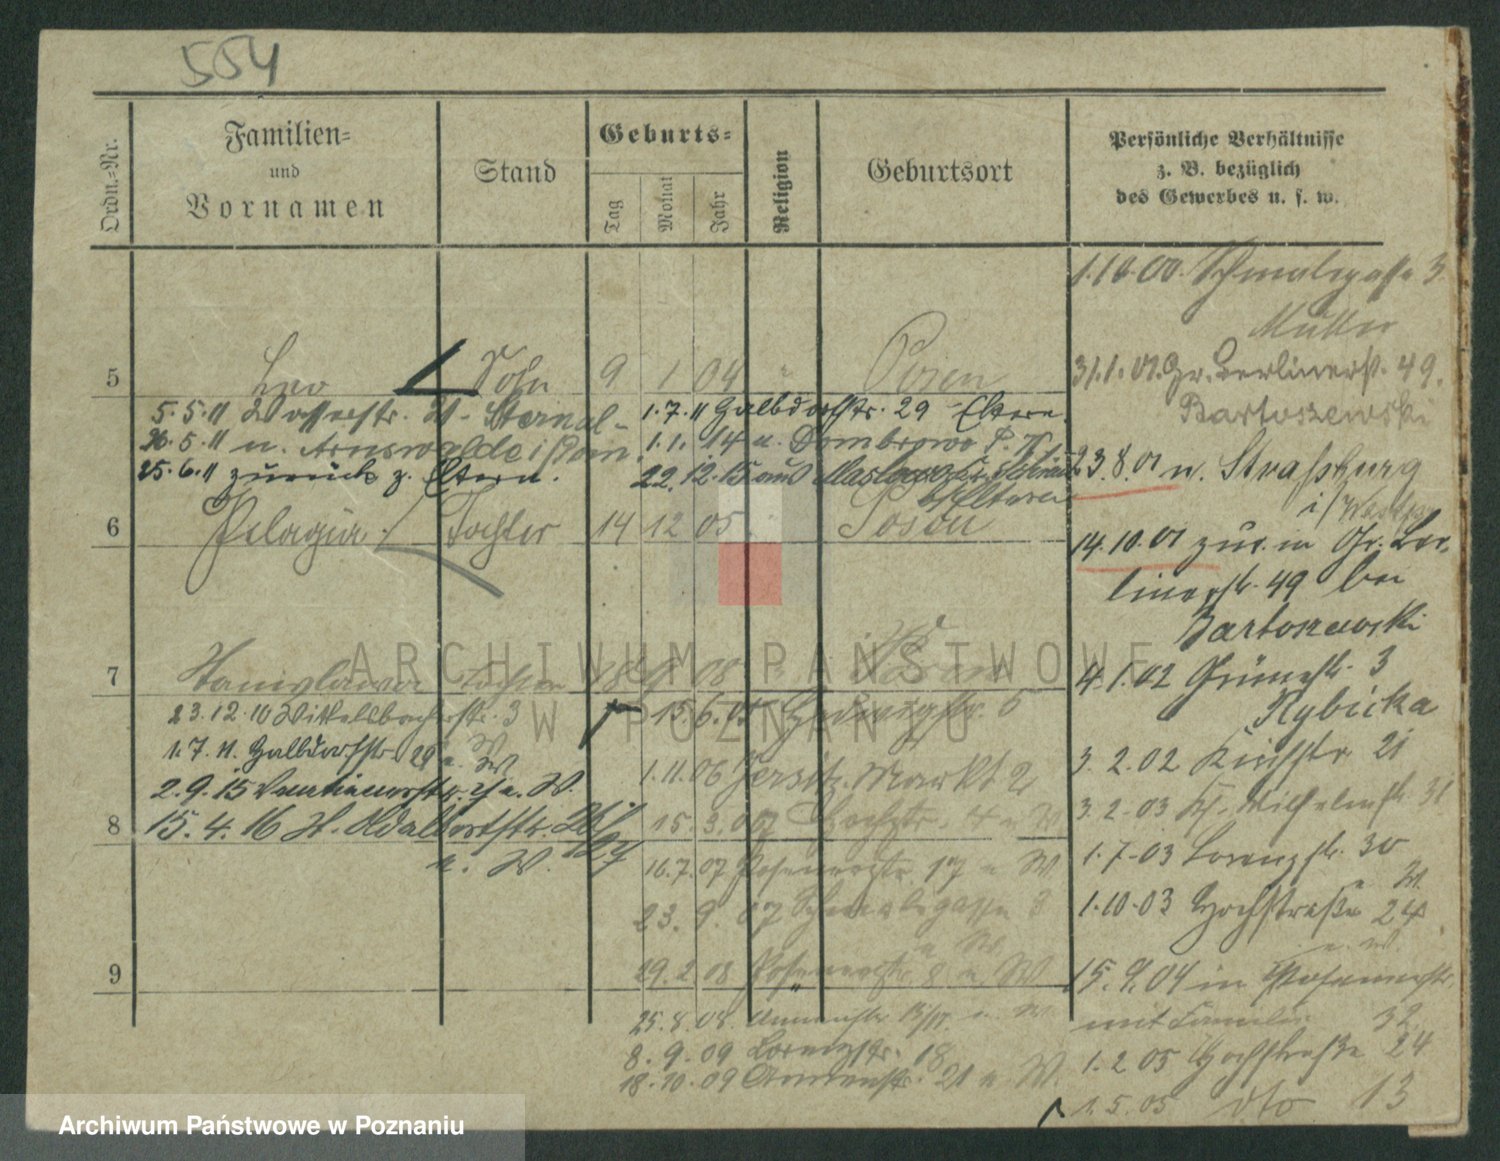 554
Ordn.-Nr.
Familien-
und
Vornamen
Stand
Geburts-
Tag
Monat
Jahr
Religion
Geburtsort
Persönliche Verhältnisse
z. B. bezüglich
des Gewerbes u. s. w.
1.10.00. Schmalegasse 3
Müller
5 Leo Sohn 9 1 04 " Posen
31.1.01. Gr. Berlinerst. 49.
Bartoszewski
5.5.11 Wasserstr.
26.5.11 n. Arnswalde i/Pom.
25.6.11 zurück z. Eltern.
1.7.11 Gallsdorfstr. 29 Eltern.
1.1.14 n. Dombrowo
22.12.15 aus
b/Eltern
23.8.01 n. Strassburg
i/Westpr
6 Pelagia Tochter 14 12 05 Posen
14.10.01 zur. in Gr. Ber-
linerstr. 49 bei
Bartoszewski
7 Stanislawa Tochter 08 Posen
4.1.02 Grünestr. 3
Rybicka
23.12.10 Wittelsbacherstr. 3
1.7.11. Gallsdorfstr. 29 u. W
2.9.15 u. W.
8
15.4.16 St. Adalbertstr.
u. W.
15.6. Hedwigstr. 5
1.11.06 Jersitz. Markt 2
15.3.07 u W
16.7.07 Posenerstr. 17 u W.
23.9.07 Schmalegasse 3
u W.
29.2.08 Posenerstr. 8 u. W
25.8.08. u. W
8.9.09 Lorenzstr. 18
18.10.09 21 u W.
3.2.02 Kirchstr. 21
3.2.03 Kl. Wilhelmstr. 31
1.7.03 Lorenzstr. 30
W.
1.10.03 Hochstraße 24
u. W.
9
15.9.04 in Posenerstr.
mit Familie 32
1.2.05 Hochstraße 24
1.5.05 dto 13
ARCHIWUM PAŃSTWOWE
W POZNANIU
Archiwum Państwowe w Poznaniu